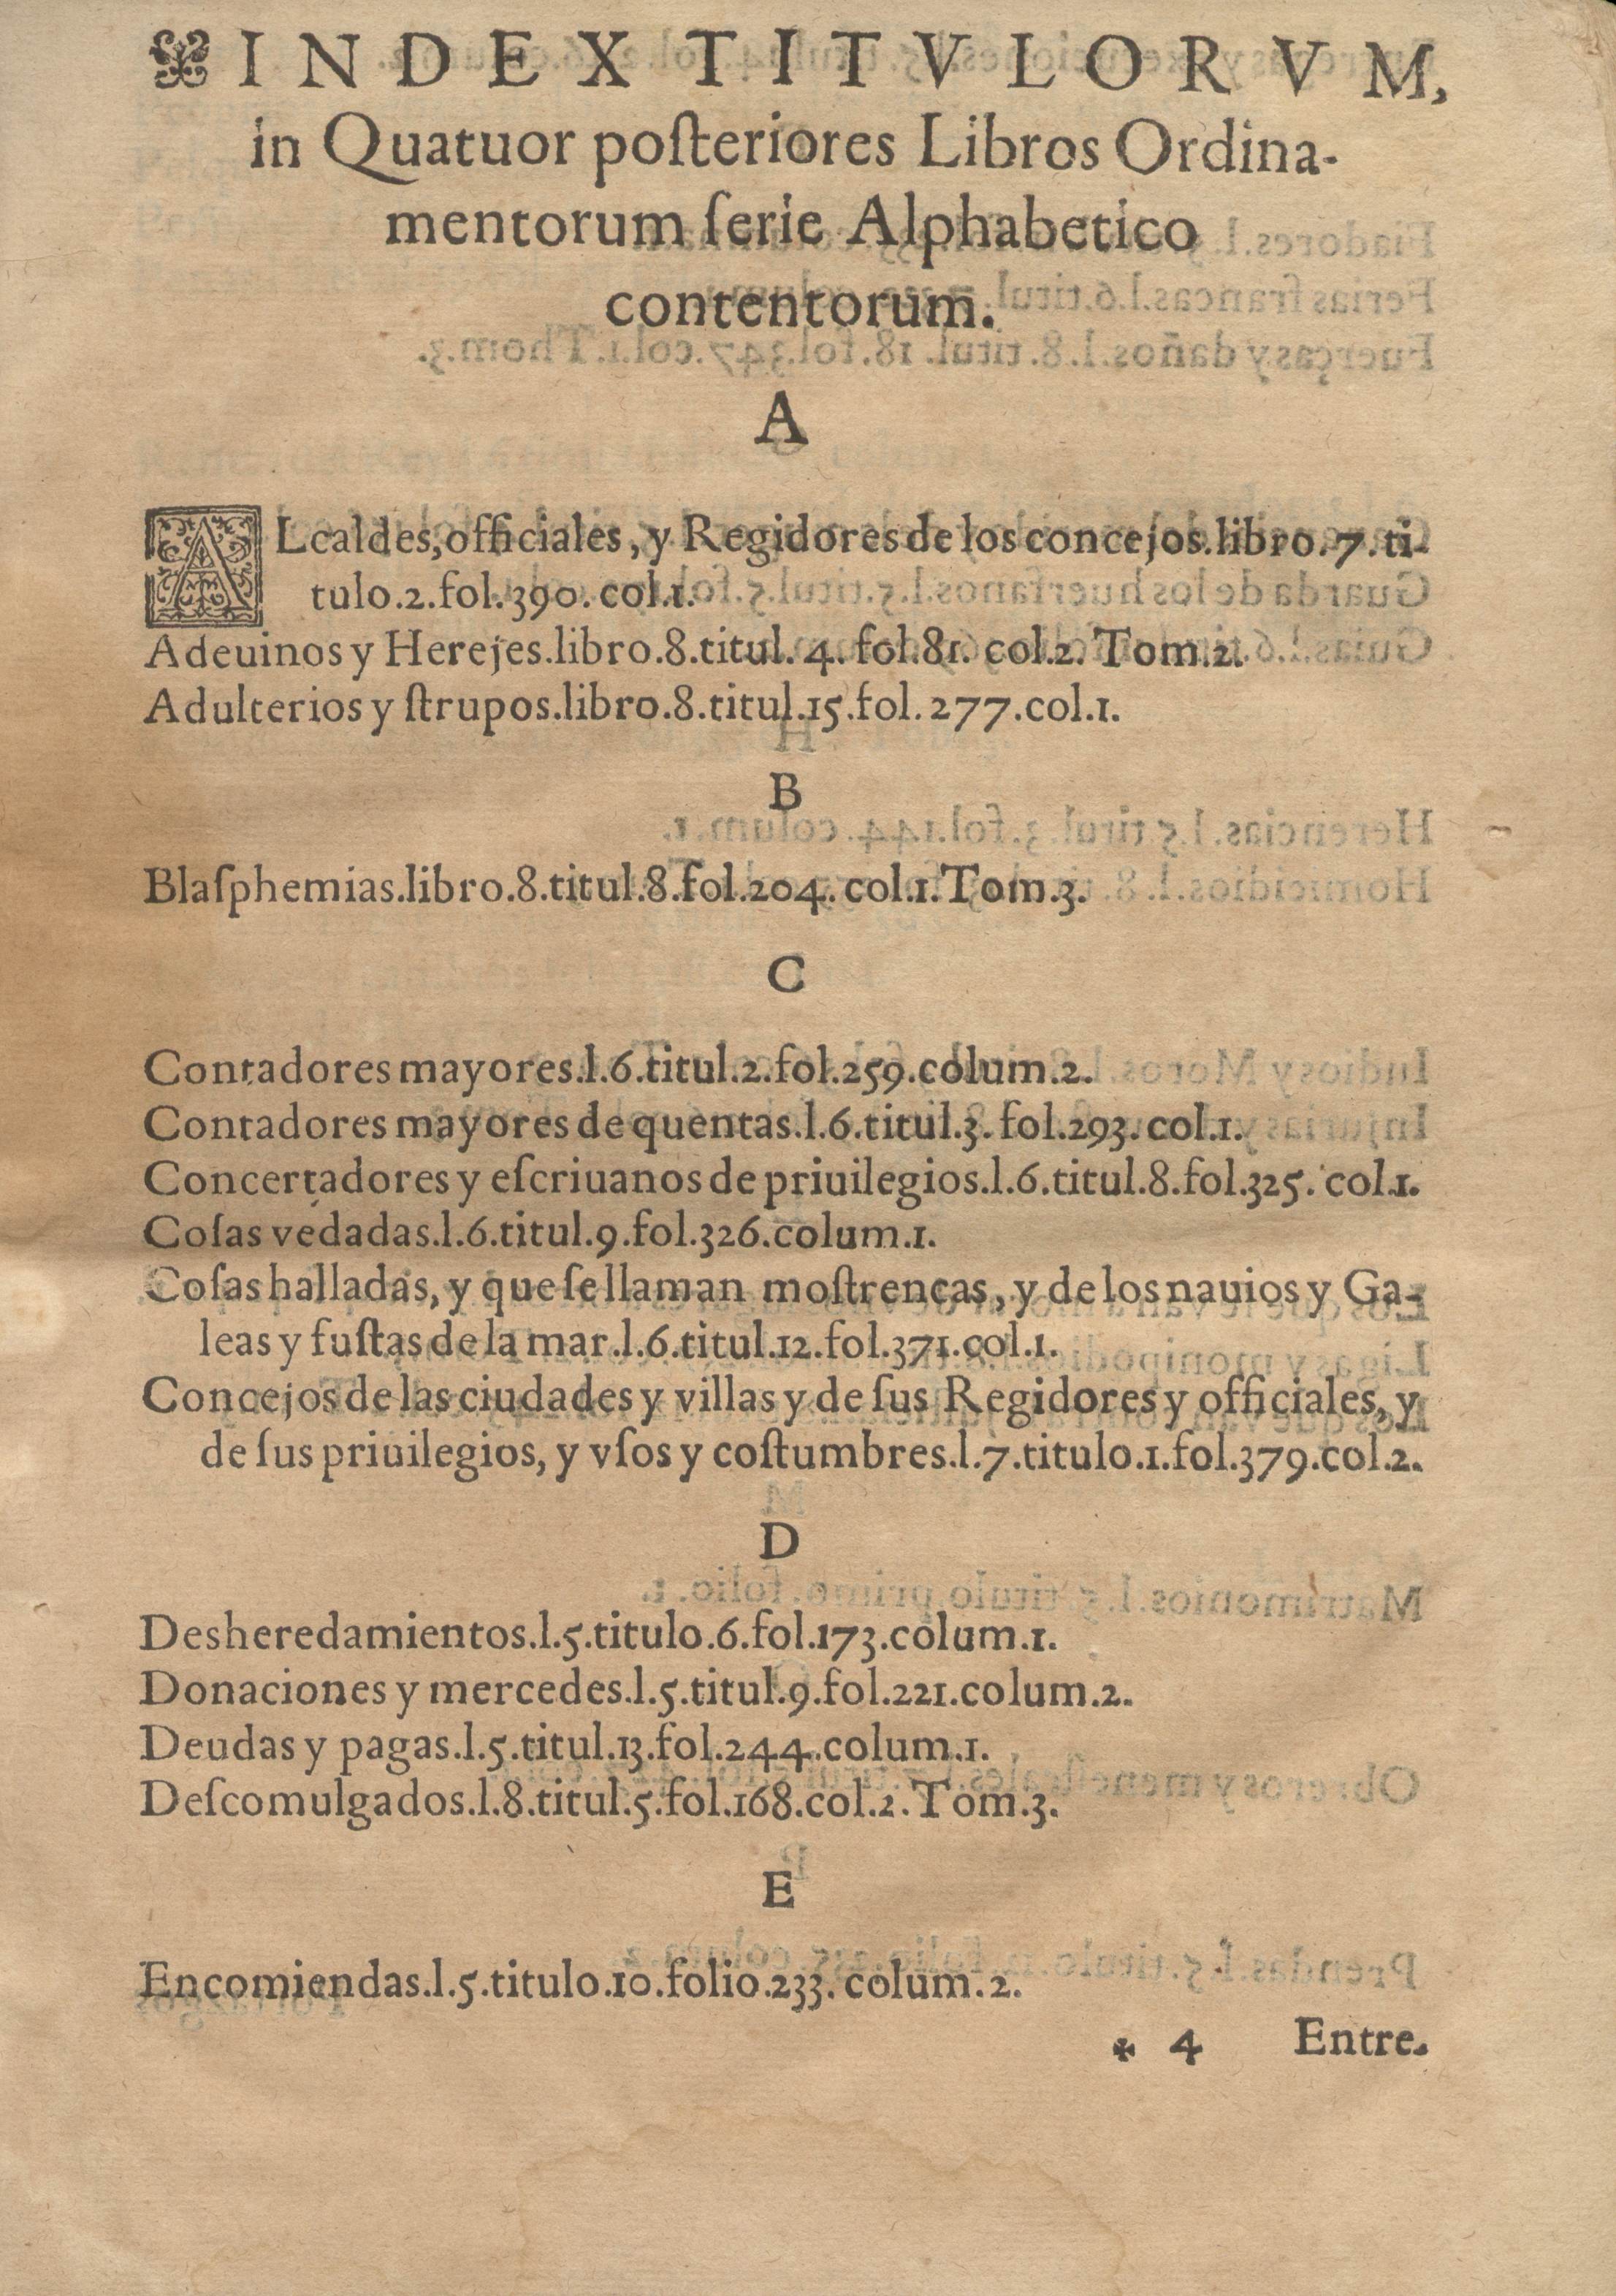 INDEX TITVLORVM,
in Quatuor poſteriores Libros Ordina-
mentorum ſerie Alphabetico
contentorum.
A
ALcaldes, officiales, y Regidores de los concejos.libro.7.ti-
tulo.2.fol.390.col.1.
Adeuinos y Herejes.libro.8.titul.4.fol.81.col.2.Tom.2.
Adulterios y ſtrupos.libro.8.titul.15.fol.277.col.1.
B
Blaſphemias.libro.8.titul.8.fol.204.col.1.Tom.3.
C
Contadores mayores.l.6.titul.2.fol.259.colum.2.
Contadores mayores de quentas.l.6.titul.3.fol.293.col.1.
Concertadores y eſcriuanos de priuilegios.l.6.titul.8.fol.325.col.1.
Coſas vedadas.l.6.titul.9.fol.326.colum.1.
Coſas halladas, y que ſe llaman moſtrencas, y de los nauios y Ga-
leas y fuſtas de la mar.l.6.titul.12.fol.371.col.1.
Concejos de las ciudades y villas y de ſus Regidores y officiales, y
de ſus priuilegios, y vſos y coſtumbres.l.7.titulo.1.fol.379.col.2.
D
Desheredamientos.l.5.titulo.6.fol.173.colum.1.
Donaciones y mercedes.l.5.titul.9.fol.221.colum.2.
Deudas y pagas.l.5.titul.13.fol.244.colum.1.
Deſcomulgados.l.8.titul.5.fol.168.col.2.Tom.3.
E
Encomiendas.l.5.titulo.10.folio.233.colum.2.
✠ 4 Entre.